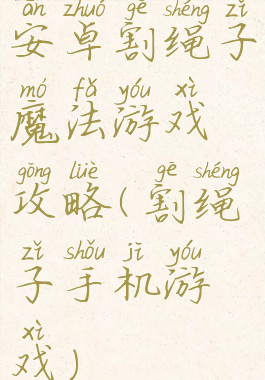 ān zhuó gē shéng zǐ
安卓割绳子
mó fǎ yóu xì
魔法游戏
gōng lüè gē shéng
攻略(割绳
zǐ shǒu jī yóu
子手机游
xì
戏)